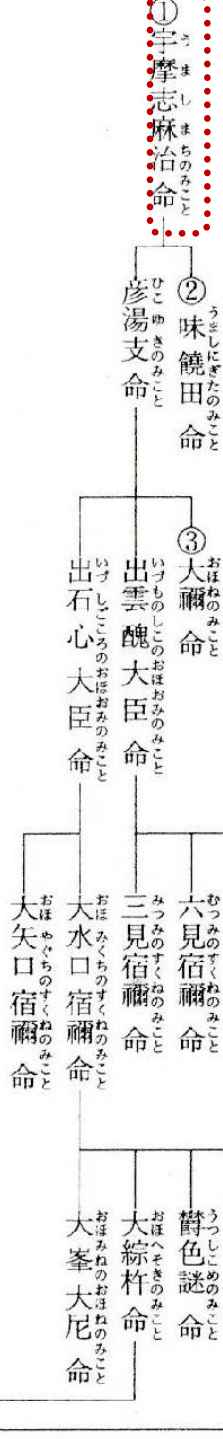 ① 宇摩志麻治命
うましまちのみこと
② 味饒田命
うましにぎたのみこと
彦湯支命
ひこゆきのみこと
③ 大禰命
おほねのみこと
出雲醜大臣命
いづものしこのおほおみのみこと
出石心大臣命
いづしごころのおほおみのみこと
六見宿禰命
むつみのすくねのみこと
三見宿禰命
みつみのすくねのみこと
大水口宿禰命
おほみくちのすくねのみこと
大矢口宿禰命
おほやぐちのすくねのみこと
欝色謎命
うつしこめのみこと
大綜杵命
おほへそきのみこと
大峯大尼命
おほみねのおほねのみこと